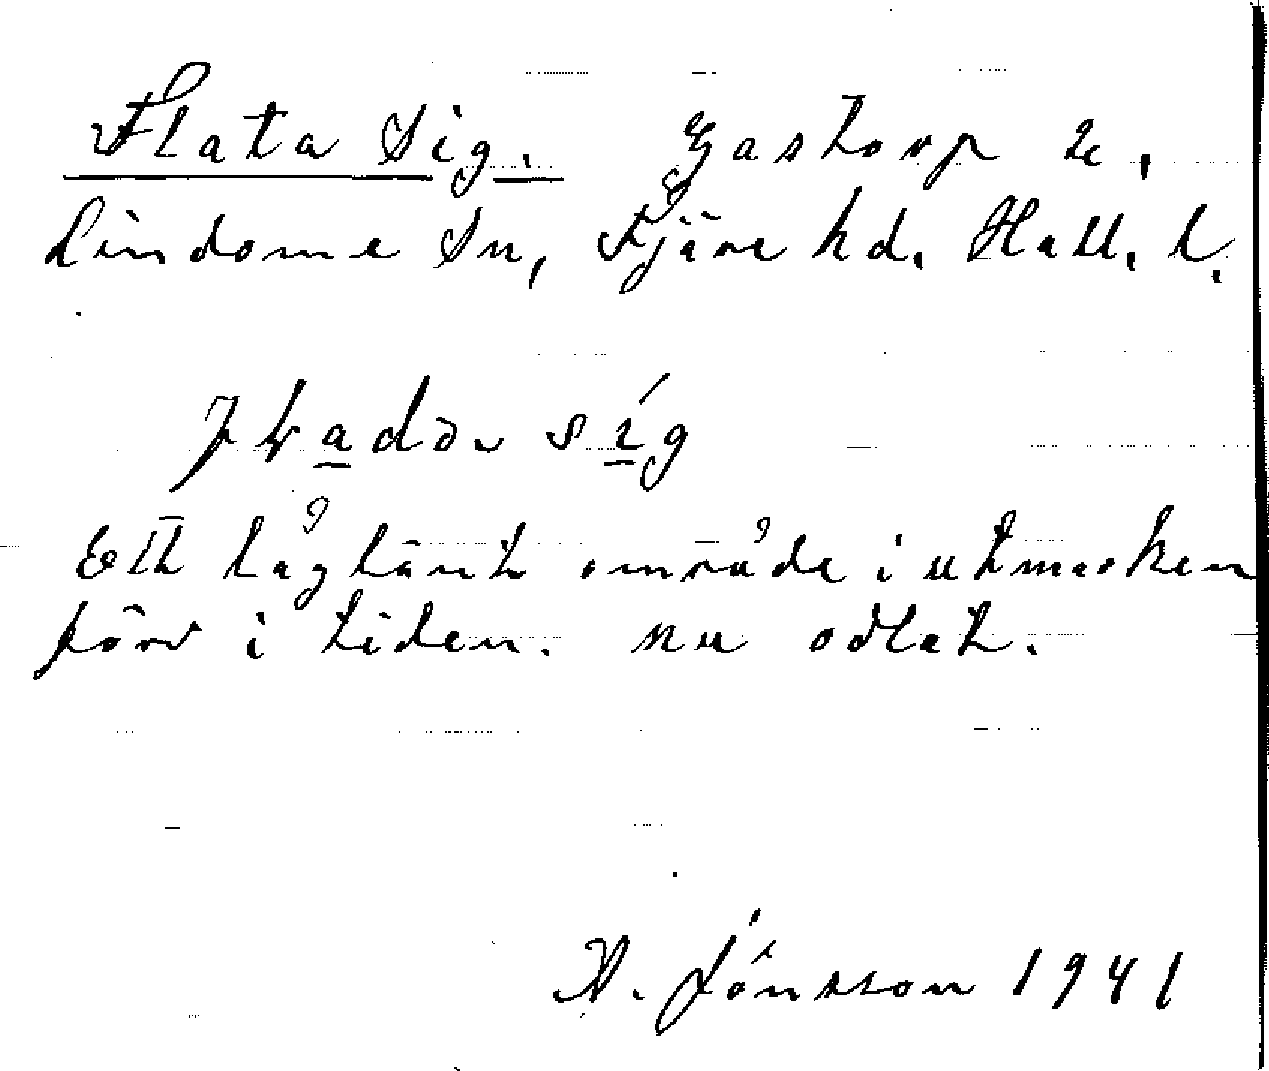 Flata Sig. Gastorp 2,
Lindome Sn, Fjäre hd. Hall. l.
fladɔ síg
Ett låglänt område i utmarken
förr i tiden. nu odlat.
Jönsson 1941